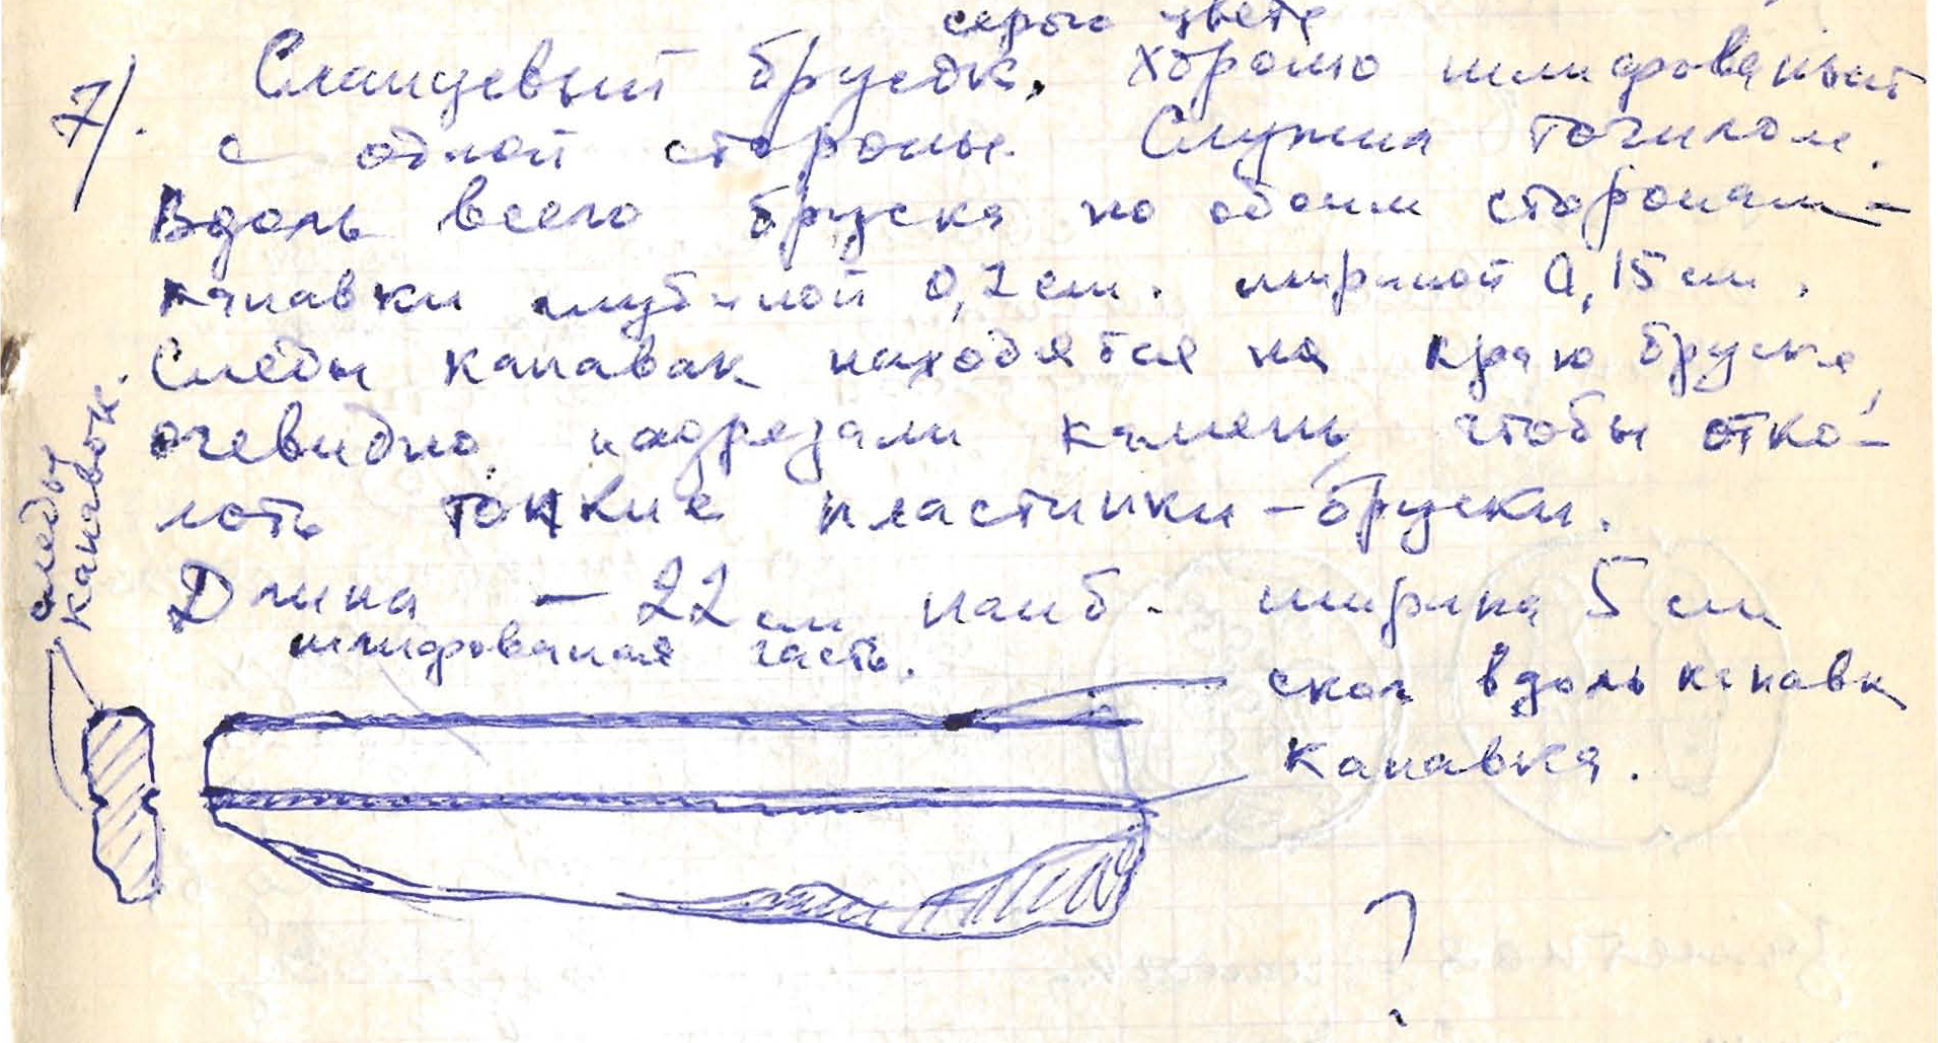 серого цвета
7). Сланцевый брусок. Хорошо шлифованый
с одной стороны. Служил точилом.
Вдоль всего бруска по обоим сторонам -
канавки глубиной 0,2 см. шириной 0,15 см.
Следы канавак находятся на краю бруска,
очевидно, надрезали камень, чтобы отко-
лоть тонкие пластинки - бруски.
Длина - 22 см наиб. ширина 5 см
шлифованая часть.
скол вдоль канавки
Канавка.
следы
канавок.
?